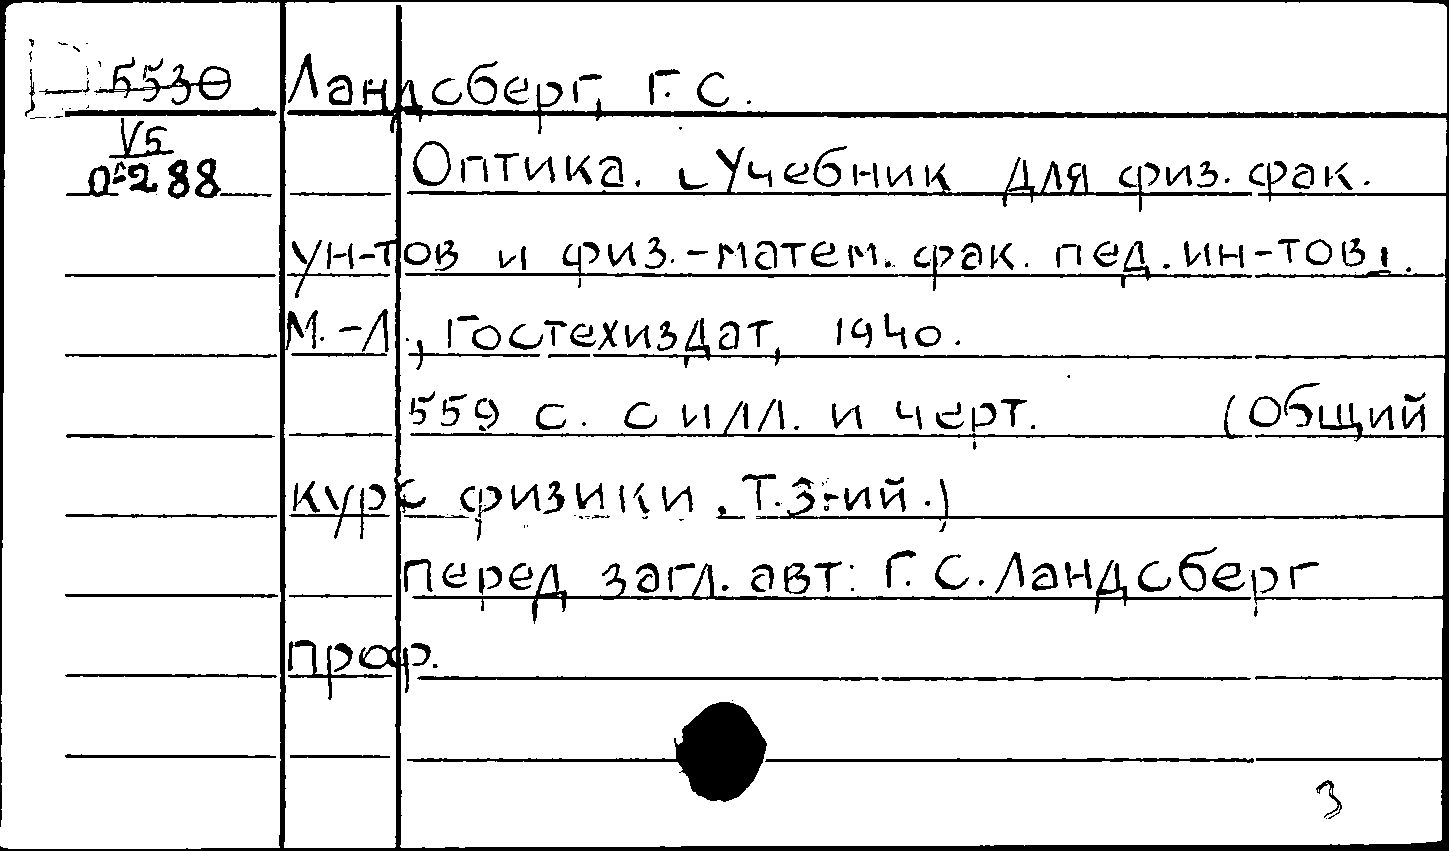 5530 Ландсберг, Г. С.
V5
Оптика. Учебник для физ. фак.
0-288
ун-тов и физ.-матем. фак. пед. ин-тов.
М.-Л., Гостехиздат, 1940.
559 с. с илл. и черт. (Общий
курс физики. Т. 3-ий.)
перед загл. авт: Г. С. Ландсберг
проф.
3